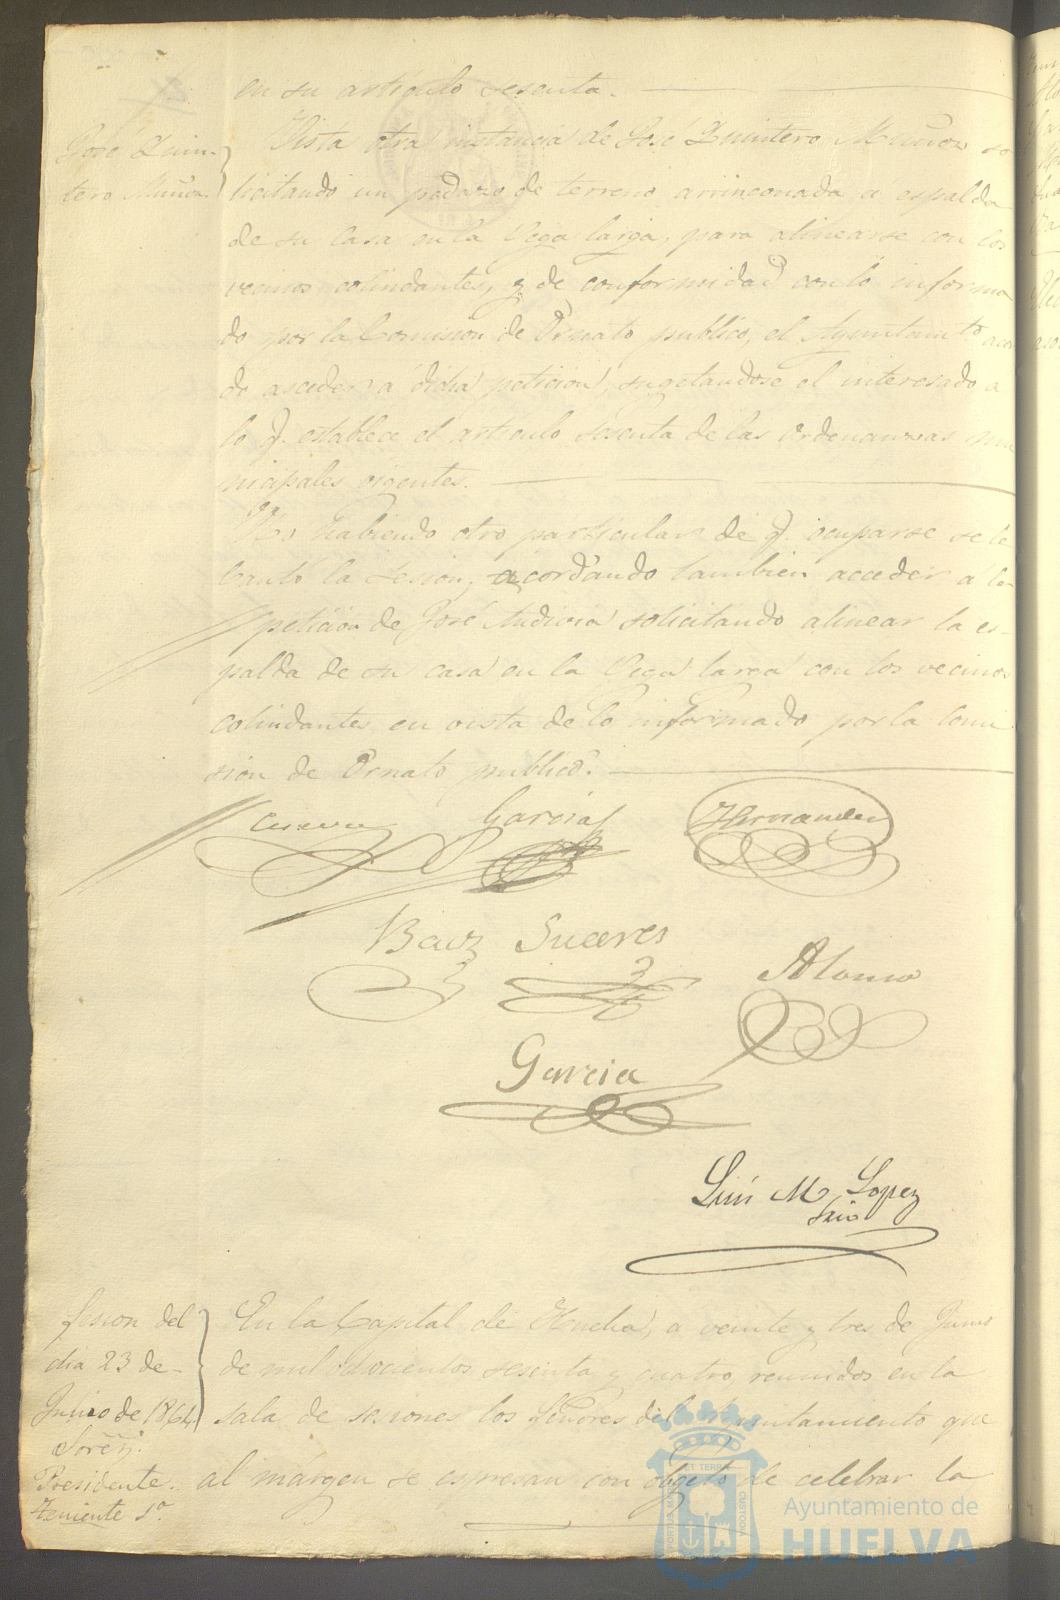 en su artículo sesenta.
José Quin-
tero Muñoz.
Vista otra instancia de José Quintero Muñoz so
licitando un pedazo de terreno arrinconada a espalda
de su casa en la Vega larga, para alinearse con los
vecinos colindantes, y de conformidad con lo informa
do por la Comision de Ornato publico, el Ayuntamto acor
do acceder a dicha petición, sugetandose el interesado a
lo q. establece el artículo sesenta de las Ordenanzas mu
nicipales vigentes.
No habiendo otro particular de q. ocuparse se le
bantó la sesion, acordando tambien acceder a la
petición de José solicitando alinear la es-
palda de su casa en la Vega larga con los vecinos
colindantes en vista de lo informado por la Comi
sion de Ornato publico.
García Hernandez
Baez Suceres
Alonso
Garcia
Luis M. Lopez
Srio
Sesion del
dia 23 de
Junio de 1864
Señores
Presidente.
Teniente 1º
En la Capital de Huelva, a veinte y tres de Junio
de mil ochocientos sesenta y cuatro, reunidos en la
sala de sesiones los Señores del Ayuntamiento que
al márgen se espresan con objeto de celebrar la
Ayuntamiento de
HUELVA